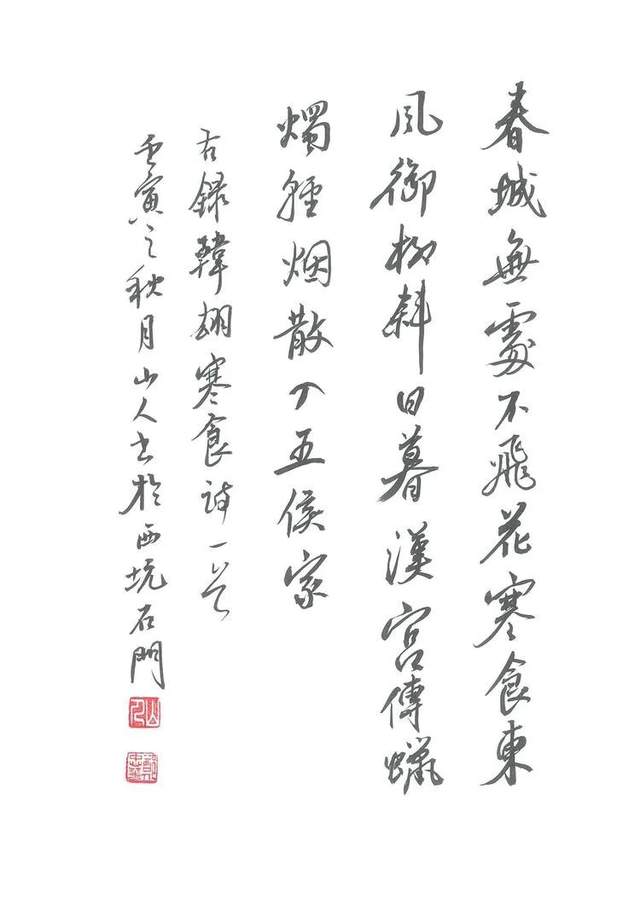 春城無處不飛花寒食東
風御柳斜日暮漢宮傳蠟
燭輕烟散入五侯家
右錄韓翃寒食詩一首
壬寅之秋月山人書於西坑石門
山人